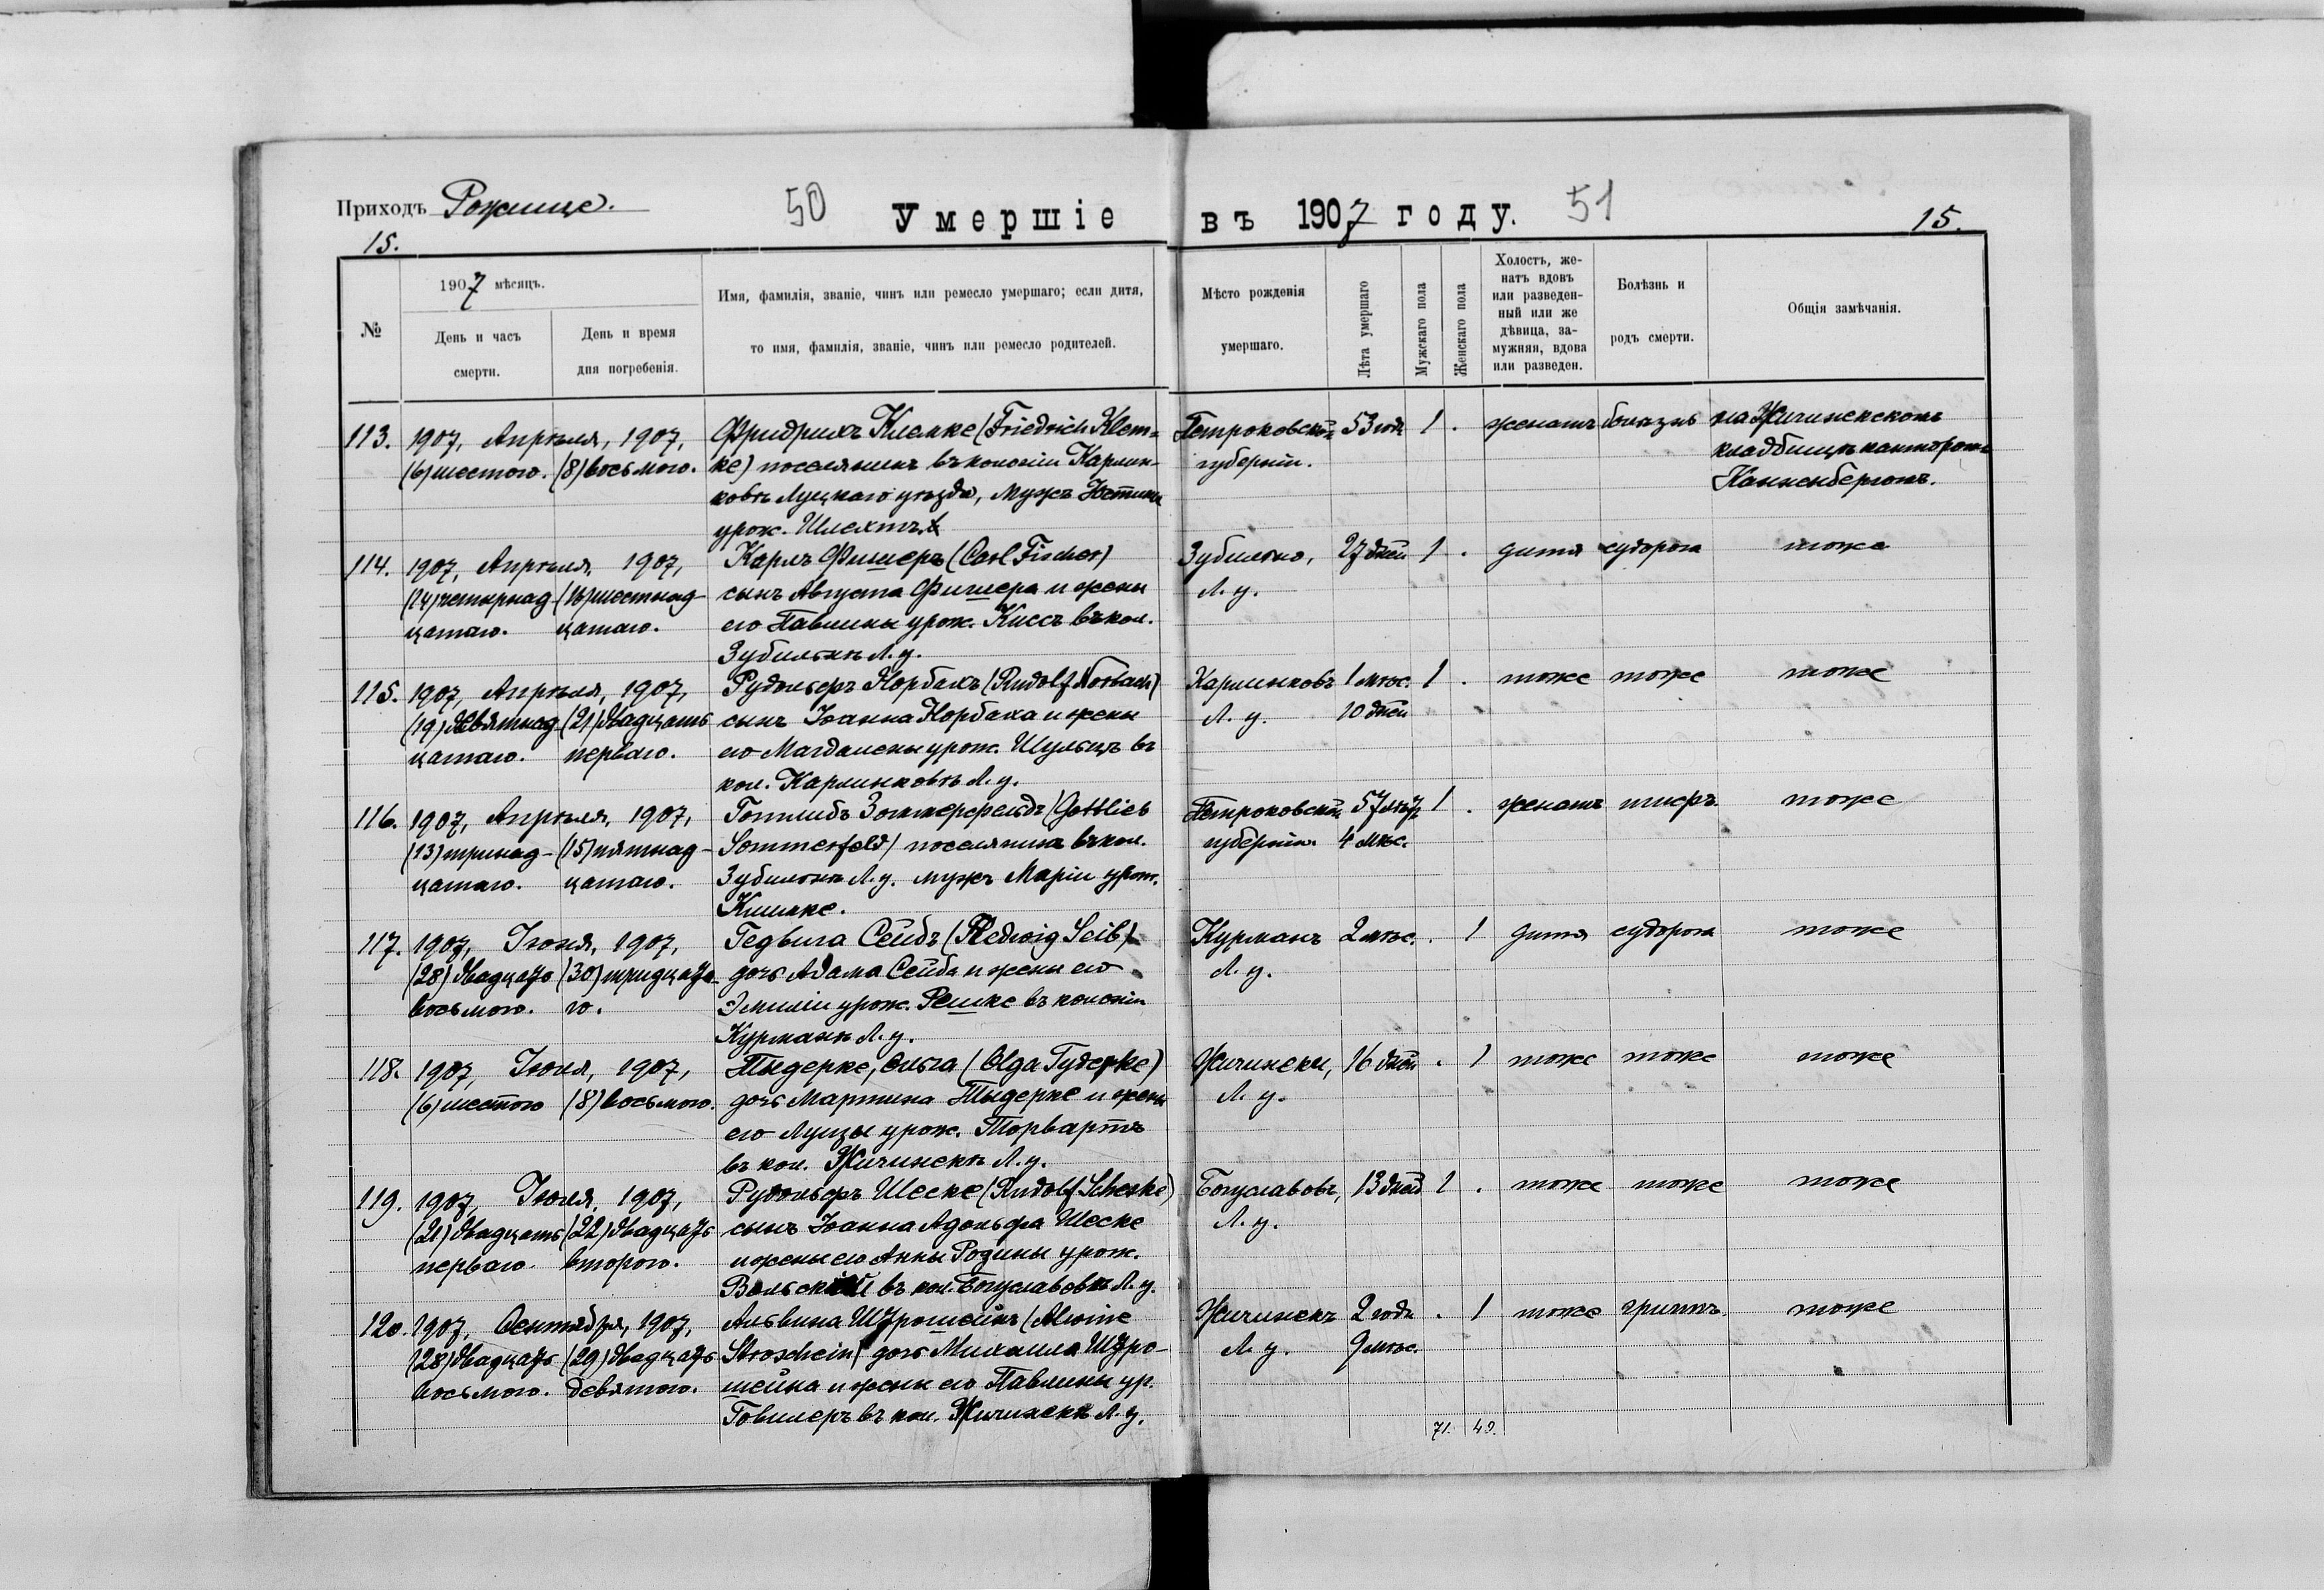 Приходъ Рожище.
50
Умершіе
въ 1907 году.
51
15.
15.
№
1907 мѣсяцъ.
День и часъ смерти.
День и время дня погребенія.
Имя, фамилія, званіе, чинъ или ремесло умершаго; если дитя,
то имя, фамилія, званіе, чинъ или ремесло родителей.
Мѣсто рожденія
умершаго.
Лѣта умершаго
Мужскаго пола
Женскаго пола
Холостъ, же-
натъ вдовъ
или разведен-
ный или же
дѣвица, за-
мужняя, вдова
или разведен.
Болѣзнь и
родъ смерти.
Общія замѣчанія.
113. 1907, Апрѣля, 1907, Фридрихъ Клемке (Friedrich Klem- Петроковской 53 года 1 . женатъ болѣзнь на Жичинекскомъ
(6) шестого. (8) восьмого. ке) поселянинъ въ колоніи Карлин- губерніи. кладбищѣ канторомъ
ковѣ Луцкаго уѣзда, мужъ Юстины Канненбергомъ.
урож. Шлехтъ
114. 1907, Апрѣля, 1907, Карлъ Фишеръ (Carl Fischer) Зубильно, 27 дней 1 . дитя судорога тоже
(14) четырнад- (16) шестнад- сынъ Августа Фишера и жены Л. у.
цатаго. цатаго. его Павлины урож. Киссъ въ кол.
Зубильнѣ Л. у.
115. 1907, Апрѣля, 1907, Рудольфъ Норбахъ (Rudolf Norbach) Карлинковъ 1 мѣс. 1 . тоже тоже тоже
(19) девятнад- (21) двадцать сынъ Іоанна Норбаха и жены Л. у. 10 дней
цатаго. перваго. его Магдалены урож. Шульцъ въ
кол. Карлинковѣ Л. у.
116. 1907, Апрѣля, 1907, Готлибъ Зоммерфельдъ (Gottlieb Петроковской 57 лѣтъ 1 . женатъ тифъ тоже
(13) тринад- (15) пятнад- Sommerfeld) поселянинъ въ кол. губерніи. 4 мѣс.
цатаго. цатаго. Зубильнѣ Л. у. мужъ Маріи урож.
117. 1907, Іюня, 1907, Гедвига Сейбъ (Hedwig Seib) Курманъ 2 мѣс. . 1 дитя судорога тоже
(28) двадцать (30) тридцата- дочь Адама Сейба и жены его Л. у.
восьмого. го. Эмиліи урож. Решке въ колоніи
Курманѣ Л. у.
118. 1907, Іюля, 1907, Тыдерке, Ольга (Olga Tyderke) Жичинекъ, 16 дней . 1 тоже тоже тоже
(6) шестого (8) восьмого. дочь Мартина Тыдерке и жены Л. у.
его Луизы урож. Торвартъ
въ кол. Жичинекѣ Л. у.
119. 1907, Іюля, 1907, Рудольфъ Шеске (Rudolf Scheske) Богуславовъ, 13 дней 1 . тоже тоже тоже
(21) двадцать (22) двадцать сынъ Іоанна Адольфа Шеске Л. у.
перваго. второго. и жены его Анны Розины урож.
въ кол. Богуславовѣ Л. у.
120. 1907, Сентября, 1907, Альвина Штрошейнъ (Alwine Жичинекъ 2 года . 1 тоже гриппъ тоже
(28) двадцать (29) двадцать Stroschein) дочь Михаила Штро- Л. у. 9 мѣс.
восьмого. девятого. шейна и жены его Павлины ур.
въ кол. Жичинекѣ Л. у.
71. 49.